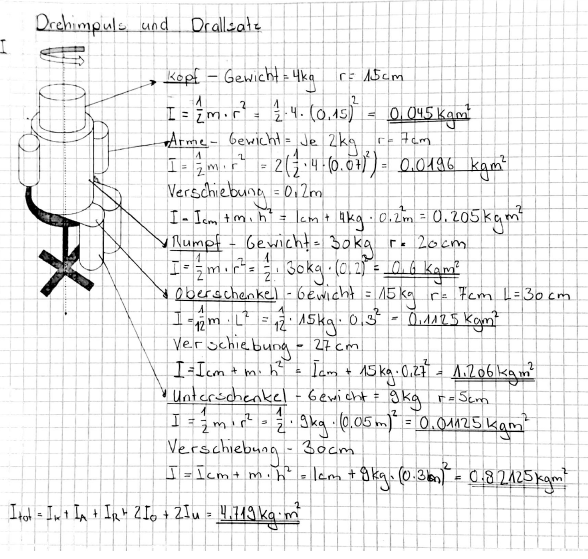 Drehimpuls und Drallsatz
I
Kopf - Gewicht = 4kg r = 15cm
I = 1/2 m · r² = 1/2 · 4 · (0,15)² = 0,045 kgm²
Arme - Gewicht = Je 2kg r = 7cm
I = 1/2 m · r² = 2(1/2 · 4 · (0.07)²) = 0,0196 kgm²
Verschiebung = 0,2m
I = Icm + m · h² = Icm + 4kg · 0,2²m = 0,205 kgm²
Rumpf - Gewicht = 30kg r = 20cm
I = 1/2 m · r² = 1/2 · 30kg · (0,2)² = 0,6 kgm²
Oberschenkel - Gewicht = 15kg r = 7cm L = 30cm
I = 1/12 m · L² = 1/12 · 15kg · 0,3² = 0,1125 kgm²
Verschiebung - 27cm
I = Icm + m · h² = Icm + 15kg · 0,27² = 1.206 kgm²
Unterschenkel - Gewicht = 9kg r = 5cm
I = 1/2 m · r² = 1/2 · 9kg · (0.05m)² = 0.01125 kgm²
Verschiebung - 30cm
I = Icm + m · h² = Icm + 9kg · (0.3m)² = 0.82125 kgm²
Itot = IK + IA + IR + 2IO + 2IU = 4.719 kg·m²